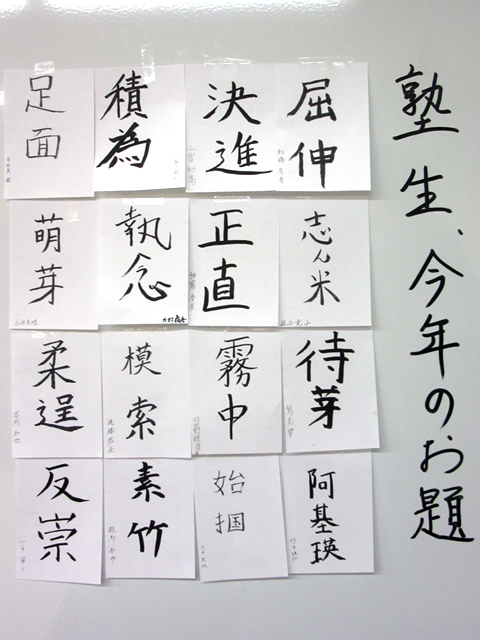 塾生、今年のお題
屈伸
決進
積為
足面
志ん米
正直
執念
萌芽
待芽
霧中
模索
柔逞
阿基瑛
始掴
素竹
反崇